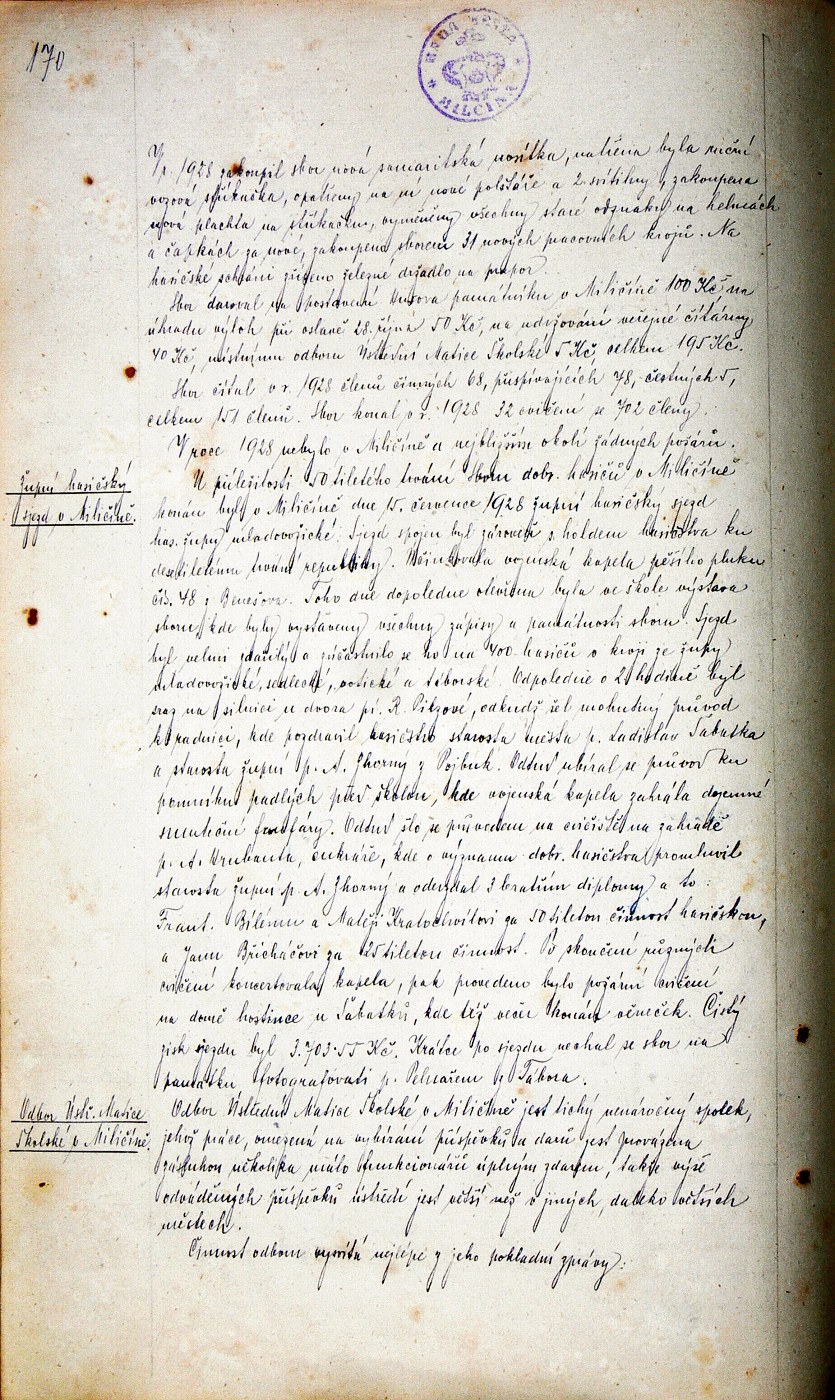 170
RADA MĚSTA
MILČINA
V r. 1928 zakoupil sbor nová samaritská nosítka, natřena byla ruční
vozová stříkačka, opatřeny na ni nové polštáře a 2 svítilny, zakoupena
nová plachta na stříkačku, vyměněny všechny staré odznaky na helmách
a čapkách za nové, zakoupeno sborem 31 nových pracovních krojů. Na
hasičské schráni zřízeno železné držadlo na prapor.
Sbor daroval na postavení Husova památníku v Miličíně 100 Kč na
úhradu výloh při oslavě 28. října 50 Kč, na udržování veřejné čítárny
40 Kč, místnímu odboru Ústřední Matice Školské 5 Kč, celkem 195 Kč.
Sbor čítal v r. 1928 členů činných 68, přispívajících 78, čestných 5,
celkem 151 členů. Sbor konal v r. 1928 32 cvičení se 702 členy.
V roce 1928 nebylo v Miličíně a nejbližším okolí žádných požárů.
Župní hasičský
sjezd v Miličíně.
U příležitosti 50tiletého trvání sboru dobr. hasičů v Miličíně
konán byl v Miličíně dne 15. července 1928 župní hasičský sjezd
has. župy mladovožické. Sjezd spojen byl zároveň s holdem hasičstva ku
desetiletému trvání republiky. Účinkovala vojenská kapela pěšího pluku
čís. 48 z Benešova. Toho dne dopoledne otevřena byla ve škole výstava
sboru, kde byly vystaveny všechny zápisy a památnosti sboru. Sjezd
byl velmi zdařilý a zúčastnilo se ho na 400 hasičů v kroji ze župy
mladovožické, sedlecké, votické a táborské. Odpoledne o 2 hodině byl
sraz na silnici u dvora pí. R. Pikzové, odkudž šel mohutný průvod
k radnici, kde pozdravil hasičstvo starosta města p. Ladislav Šabatka
a starosta župní p. A. Zhorný z Pojbuk. Odtud ubíral se průvod ku
pomníku padlých před školou, kde vojenská kapela zahrála dojemné
smuteční fanfáry. Odtud šlo se průvodem na cvičiště na zahradě
p. A. Urubanta, cukráře, kde o významu dobr. hasičstva promluvil
starosta župní p. A. Zhorný a odevzdal 3 bratřím diplomy a to:
Frant. Bílému a Matěji Kratochvílovi za 50tiletou činnost hasičskou,
a Janu Břicháčovi za 25tiletou činnost. Po skončení různých
cvičení koncertovala kapela, pak provedeno bylo požární cvičení
na domě hostince u Šabatků, kde též večer konán věneček. Čistý
zisk sjezdu byl 3.703.55 Kč. Krátce po sjezdu nechal se sbor na
památku fotografovati p. Pelnařem z Tábora.
Odbor Ústř. Matice
Školské v Miličíně.
Odbor Ústřední Matice Školské v Miličíně jest tichý nenáročný spolek,
jehož práce, omezená na vybírání příspěvků a darů jest provázena
zásluhou několika málo funkcionářů úplným zdarem, takže výše
odváděných příspěvků ústředí jest větší než v jiných, daleko větších
městech.
Činnost odboru vysvítá nejlépe z jeho pokladní zprávy: